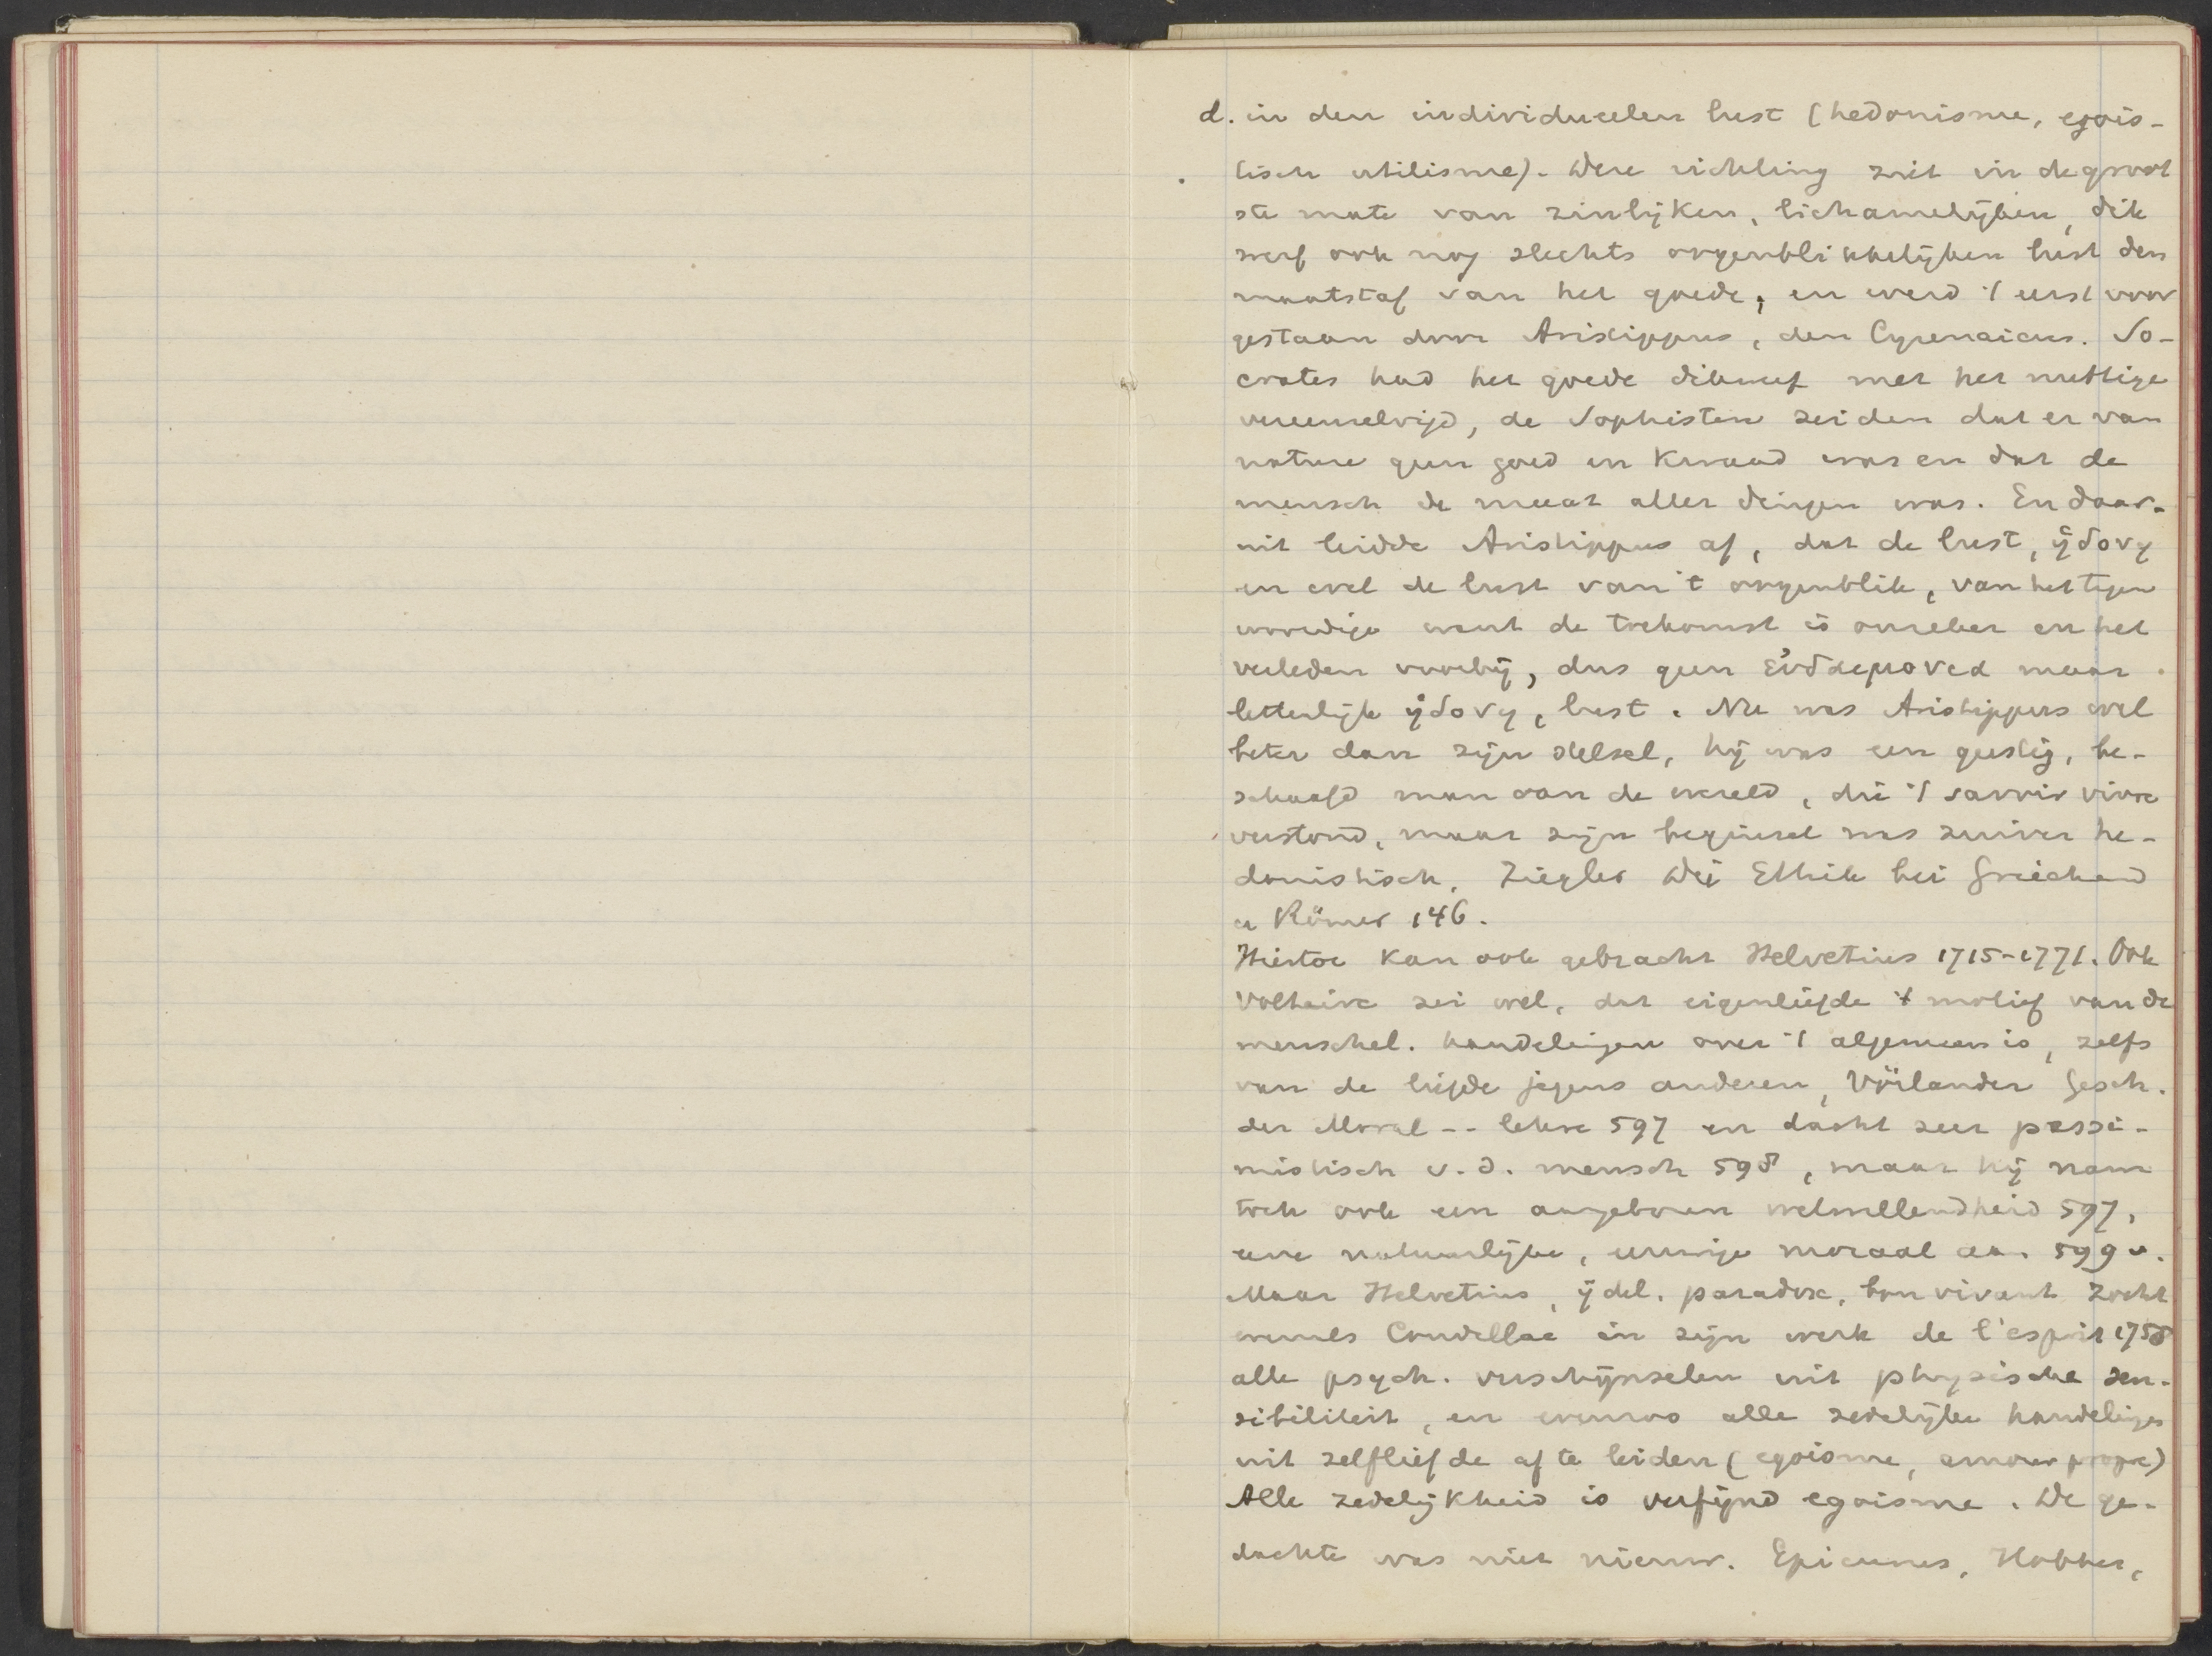 d. in den individueelen lust (hedonisme, egois-
tisch utilisme). Deze richting ziet in de groot
ste mate van zinlijken, lichamelijken, dik
werf ook nog slechts oogenblikkelijken lust den
maatstaf van het goede, en werd 't eerst voor
gestaan door Aristippus, den Cyrenaicus. So-
crates had het goede dikwerf met het nuttige
vereenzelvigd, de Sophisten zeiden dat er van
nature geen goed en kwaad was en dat de
mensch de maat aller dingen was. En daar-
uit leidde Aristippus af, dat de lust, ἡδονη
en wel de lust van 't oogenblik, van het tegen
woordige want de toekomst is onzeker en het
verleden voorbij, dus geen εὐδαιμονια maar
letterlijk ἡδονη, lust. Nu was Aristippus wel
beter dan zijn stelsel, hij was een geestig, be-
schaafd man van de wereld, die 't savoir vivre
verstond, maar zijn beginsel was zuiver he-
donistisch. Ziegler Die Ethik bei Griechen
u Römer 146.
Hiertoe kan ook gebracht Helvetius 1715-1771. Ook
Voltaire zei wel, dat eigenliefde 't motief van de
menschel. handelingen over 't algemeen is, zelfs
van de liefde jegens anderen, Vörlander Gesch.
der Moral -- lehre 597 en dacht zeer pessi-
mistisch v. d. mensch 598, maar hij nam
toch ook een aangeboren welwillendheid 597,
eene natuurlijke, eeuwige moraal aan 599 v.
Maar Helvetius, ijdel, paradox, bon vivant zocht
evenals Condillac in zijn werk de l'esprit 1758
alle psych. verschijnselen uit physische sen-
sibiliteit, en evenzoo alle zedelijke handelingen
uit zelfliefde af te leiden (egoisme, amour propre)
Alle zedelijkheid is verfijnd egoisme. De ge-
dachte was niet nieuw. Epicurus, Hobbes,